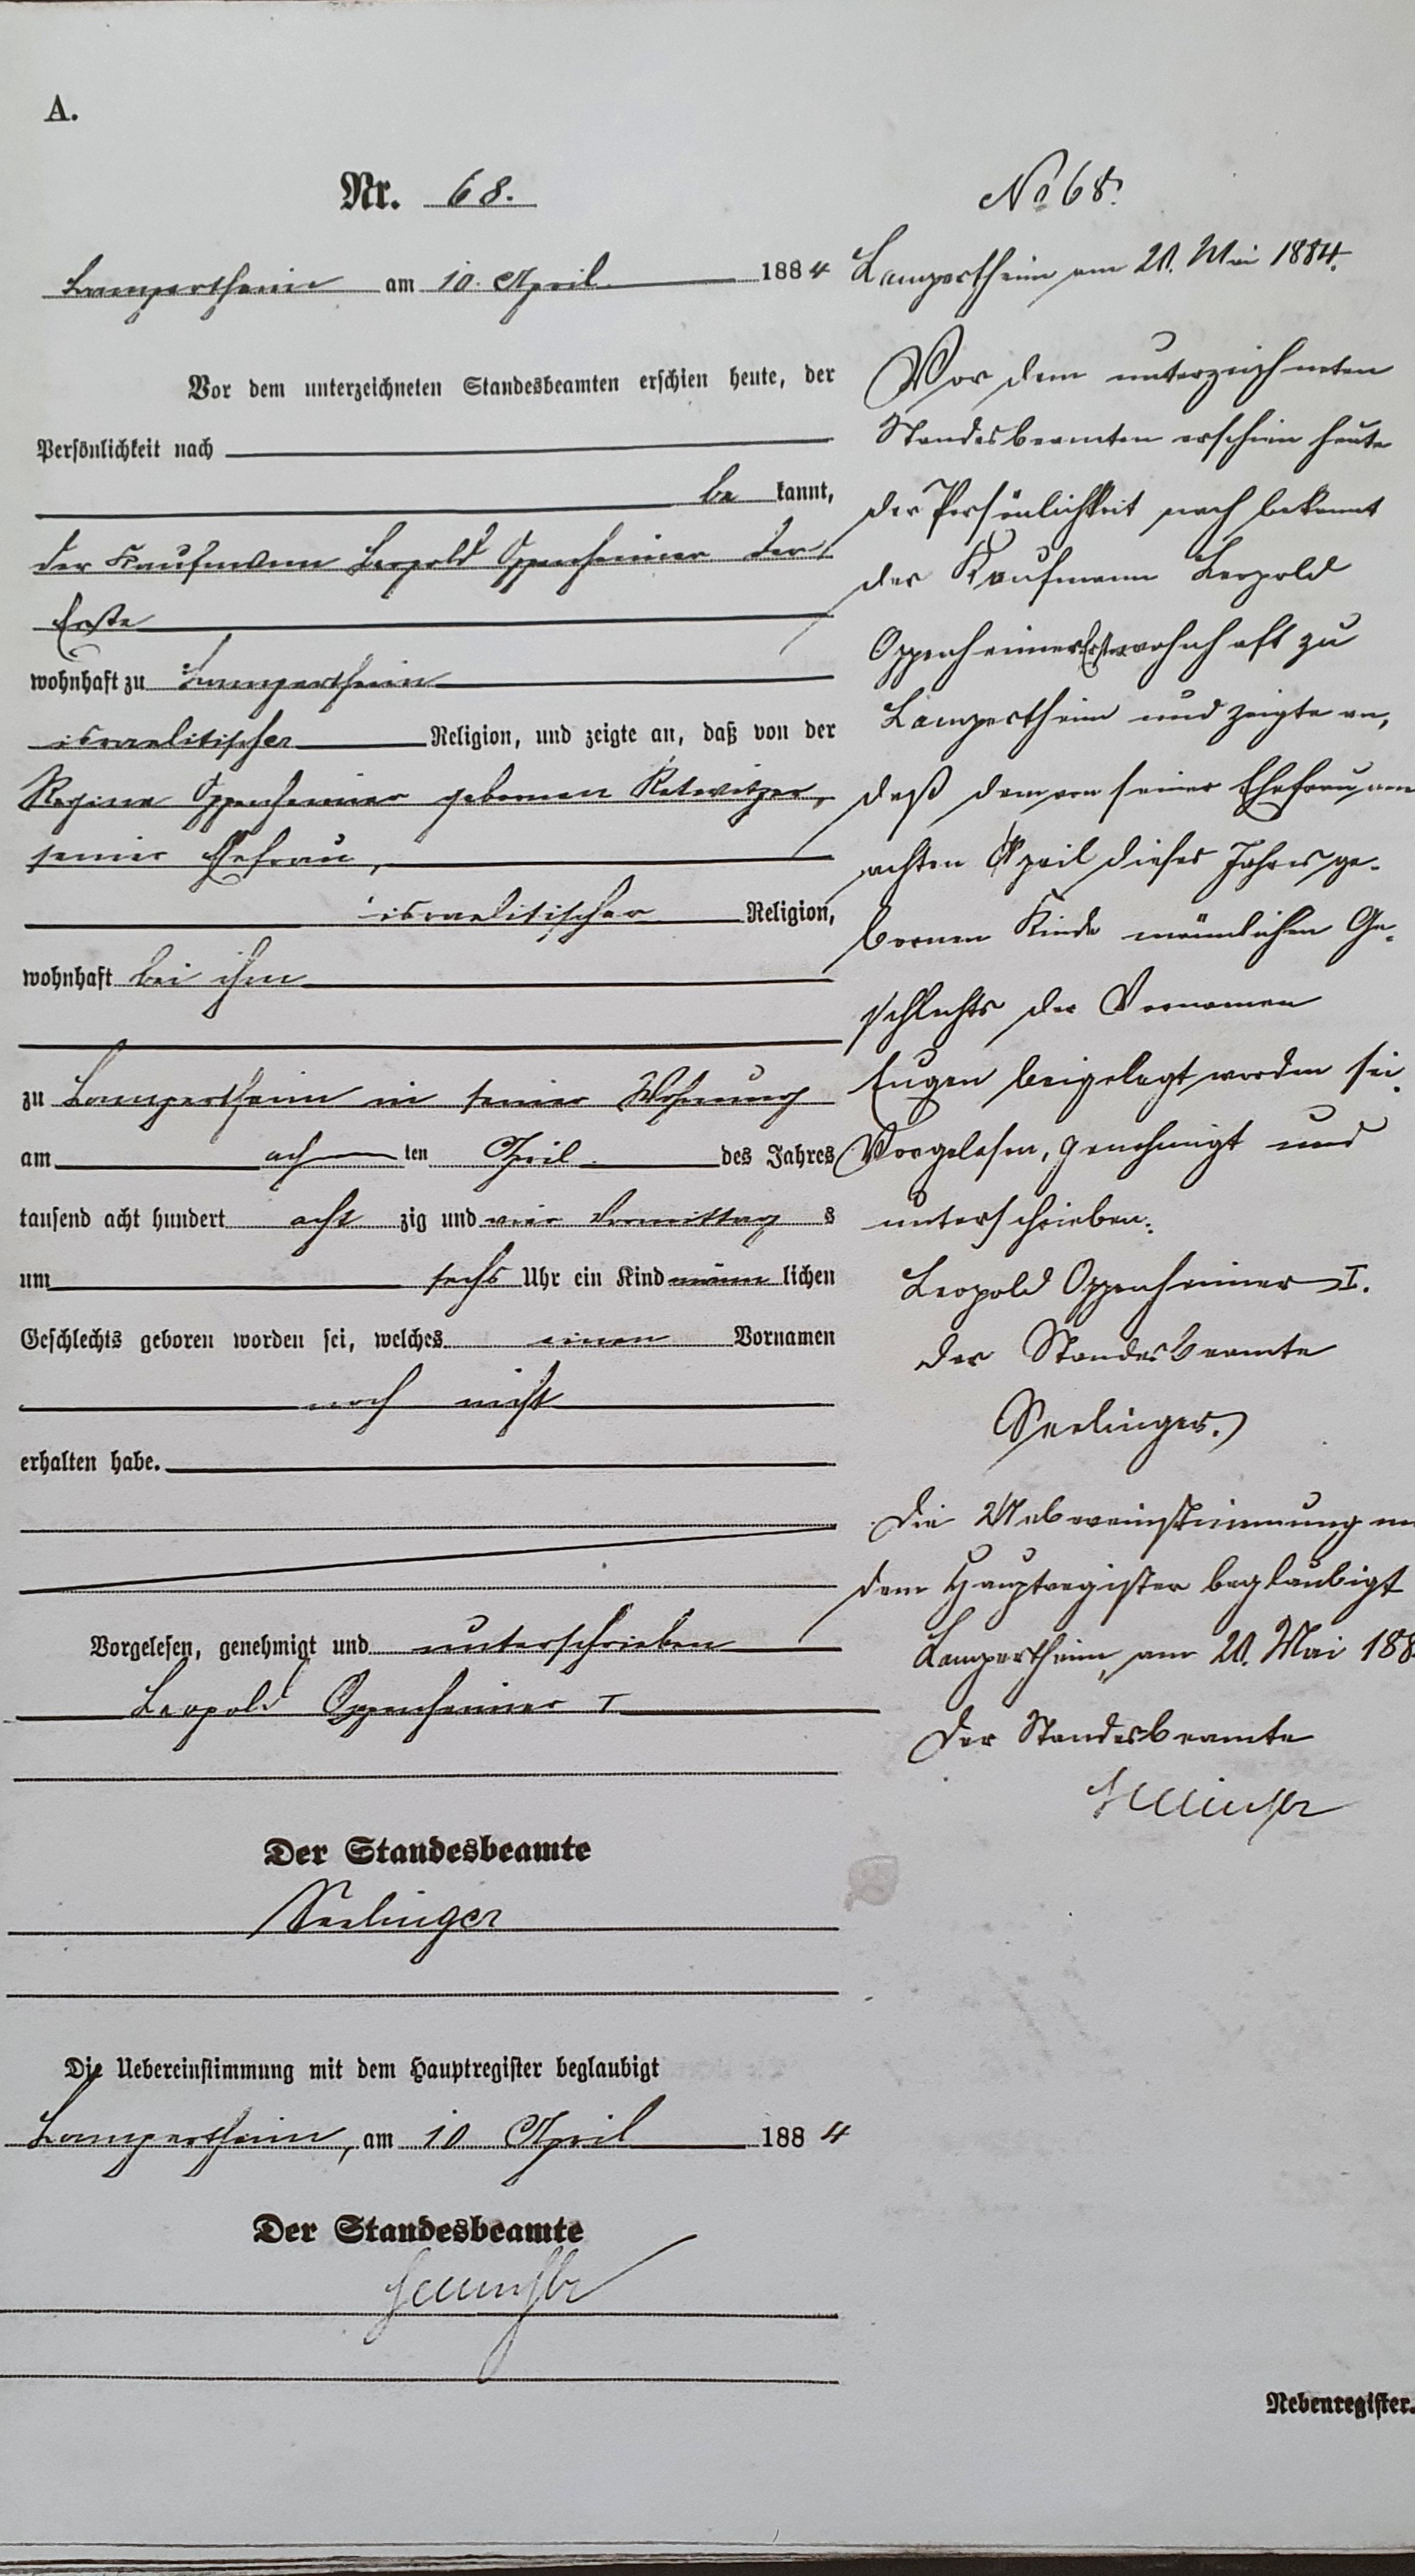 A.
Nr. 68.
Lampertheim am 10. April 1884
Vor dem unterzeichneten Standesbeamten erschien heute, der
Persönlichkeit nach
be kannt,
der Kaufmann Leopold Oppenheimer der
Erste
wohnhaft zu Lampertheim
israelitischer Religion, und zeigte an, daß von der
Regina Oppenheimer gebornen
seiner Ehefrau,
israelitischer Religion,
wohnhaft bei ihm
zu Lampertheim in seiner Wohnung
am ach ten April des Jahres
tausend acht hundert acht zig und vier Vormittag s
um sechs Uhr ein Kind männ lichen
Geschlechts geboren worden sei, welches einen Vornamen
noch nicht
erhalten habe.
Vorgelesen, genehmigt und unterschrieben
Leopold Oppenheimer I
Der Standesbeamte
Seelinger
Die Uebereinstimmung mit dem Hauptregister beglaubigt
Lampertheim, am 10 April 1884
Der Standesbeamte
Seelinger
No 68.
Lampertheim am Mai 1884.
Vor dem unterzeichneten
Standesbeamten erschien heute
der Persönlichkeit nach bekannt
der Kaufmann Leopold
Oppenheimer Erste wohnhaft zu
Lampertheim und zeigte an,
daß dem von seiner Ehefrau am
achten April dieses Jahres ge-
bornen Kinde männlichen Ge-
schlechts der Vornamen
Eugen beigelegt worden sei.
Vorgelesen, genehmigt und
unterschrieben.
Leopold Oppenheimer I.
Der Standesbeamte
Seelinger.
Die Uebereinstimmung m
dem Hauptregister beglaubigt
Lampertheim, am Mai 188
Der Standesbeamte
Seelinger
Nebenregister.